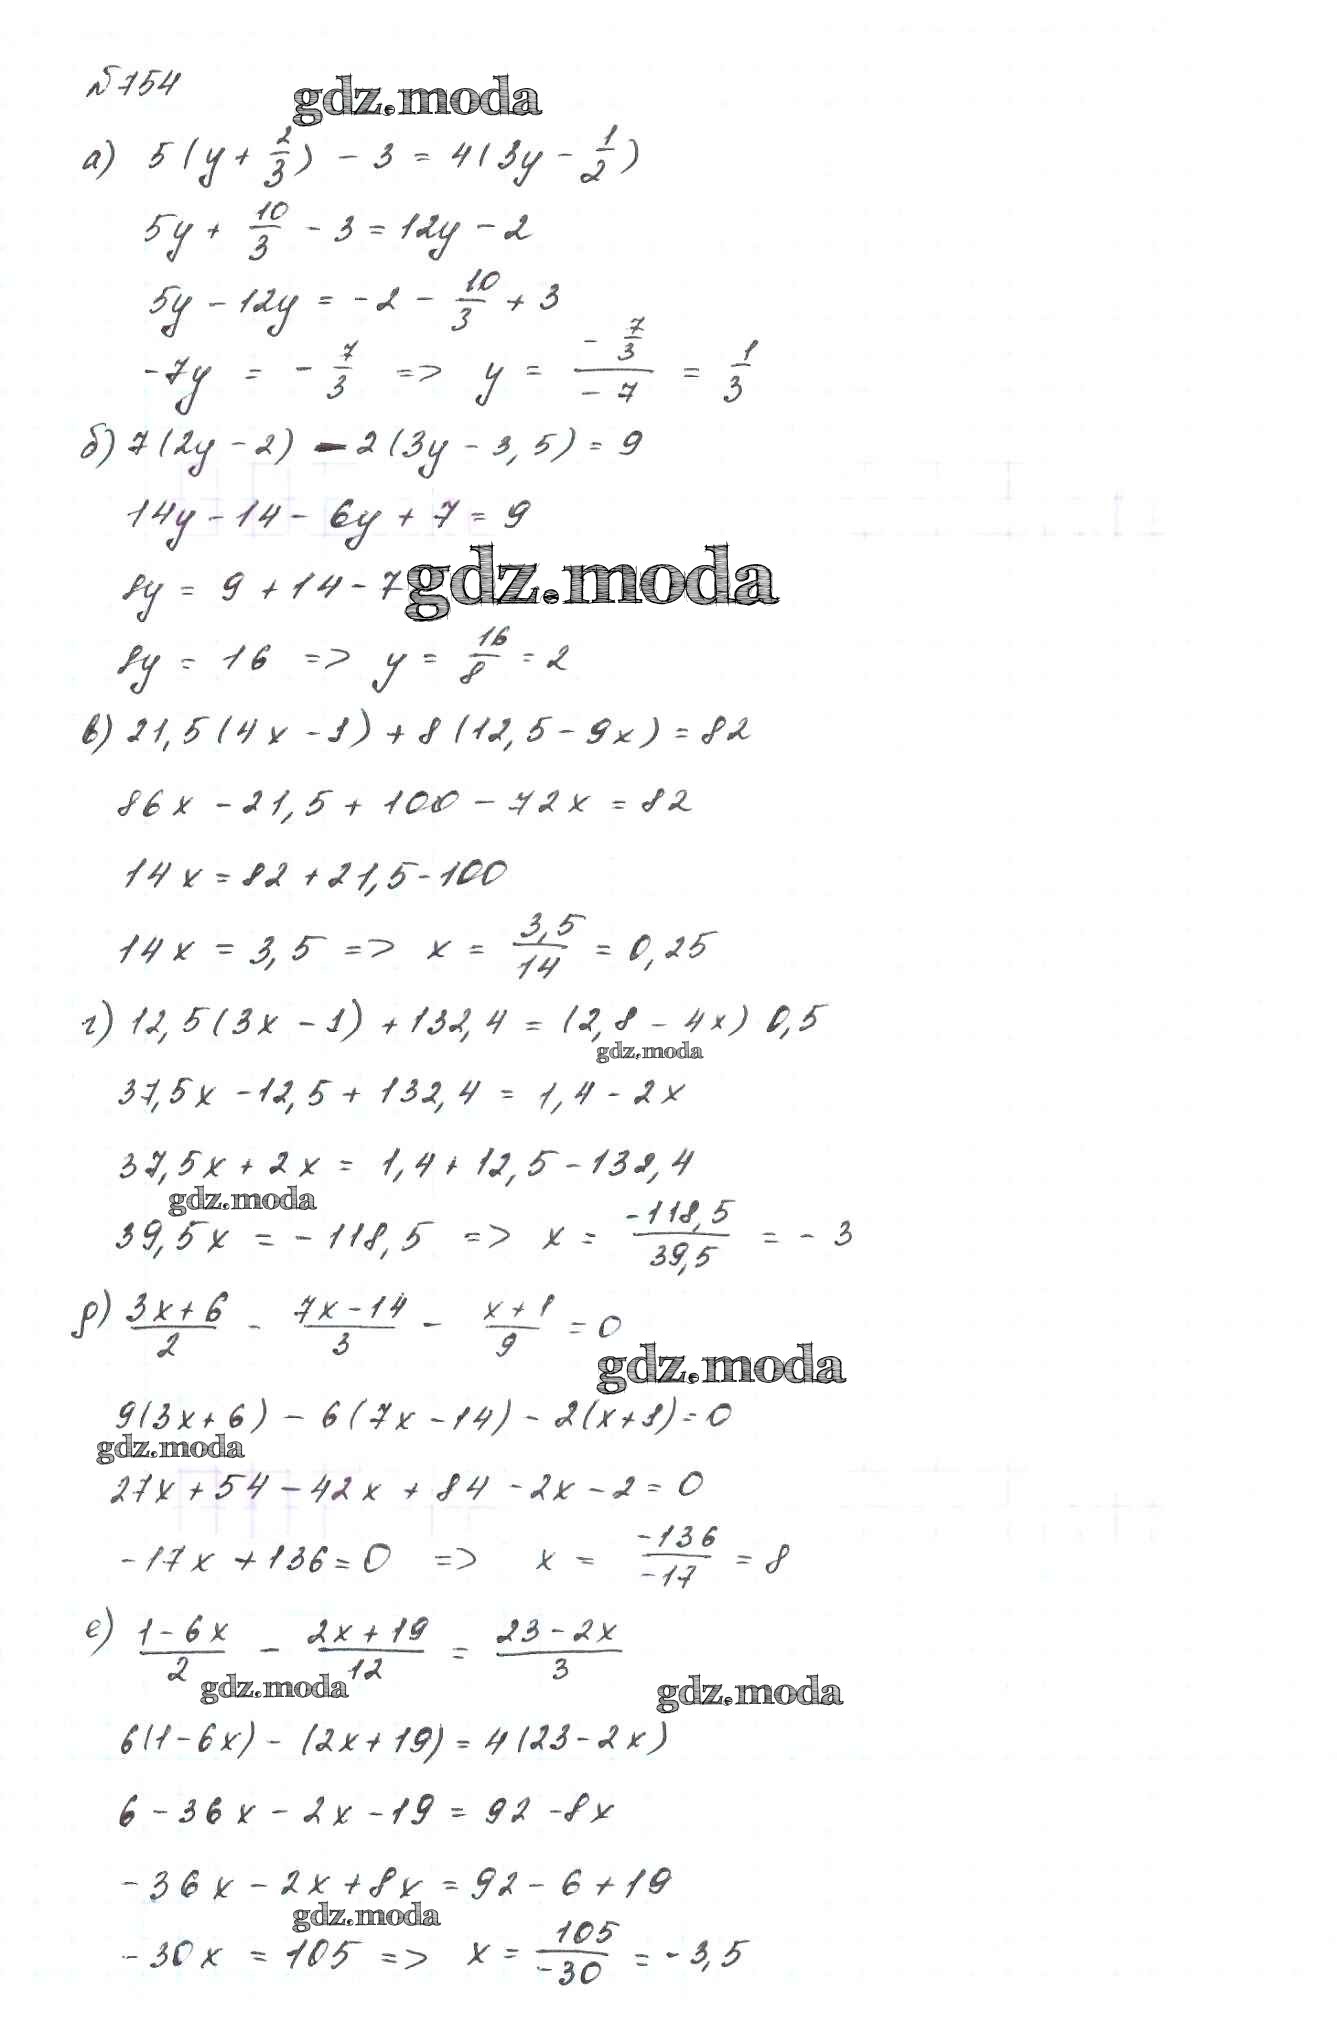 №154
gdz.moda
а) 5(y + 2/3) - 3 = 4(3y - 1/2)
5y + 10/3 - 3 = 12y - 2
5y - 12y = -2 - 10/3 + 3
-7y = -7/3 => y = (-7/3)/(-7) = 1/3
б) 7(2y - 2) - 2(3y - 3,5) = 9
14y - 14 - 6y + 7 = 9
8y = 9 + 14 - 7
gdz.moda
8y = 16 => y = 16/8 = 2
в) 21,5(4x - 1) + 8(12,5 - 9x) = 82
86x - 21,5 + 100 - 72x = 82
14x = 82 + 21,5 - 100
14x = 3,5 => x = 3,5/14 = 0,25
г) 12,5(3x - 1) + 132,4 = (2,8 - 4x) 0,5
gdz.moda
37,5x - 12,5 + 132,4 = 1,4 - 2x
37,5x + 2x = 1,4 + 12,5 - 132,4
gdz.moda
39,5x = -118,5 => x = -118,5/39,5 = -3
д) (3x + 6)/2 - (7x - 14)/3 - (x + 1)/9 = 0
gdz.moda
9(3x + 6) - 6(7x - 14) - 2(x + 1) = 0
gdz.moda
27x + 54 - 42x + 84 - 2x - 2 = 0
-17x + 136 = 0 => x = -136/-17 = 8
е) (1 - 6x)/2 - (2x + 19)/12 = (23 - 2x)/3
gdz.moda gdz.moda
6(1 - 6x) - (2x + 19) = 4(23 - 2x)
6 - 36x - 2x - 19 = 92 - 8x
-36x - 2x + 8x = 92 - 6 + 19
gdz.moda
-30x = 105 => x = 105/-30 = -3,5